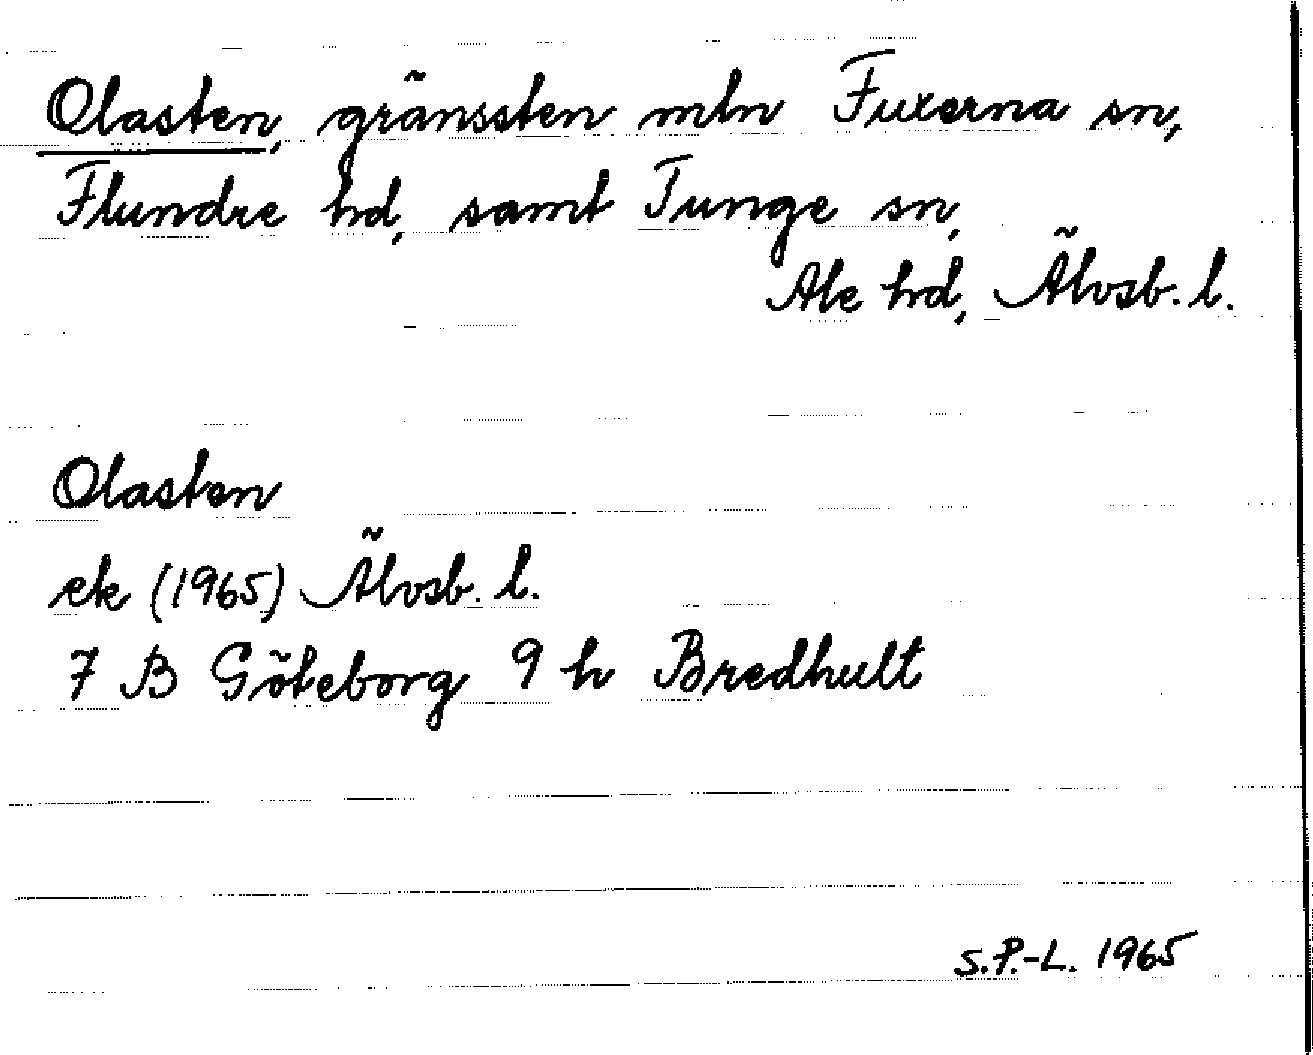 Olasten, gränssten mln Fuxerna sn,
Flundre hd, samt Tunge sn,
Ale hd, Älvsb. l.
Olasten
ek (1965) Älvsb. l.
7 B Göteborg 9 h Bredhult
S.P.-L. 1965